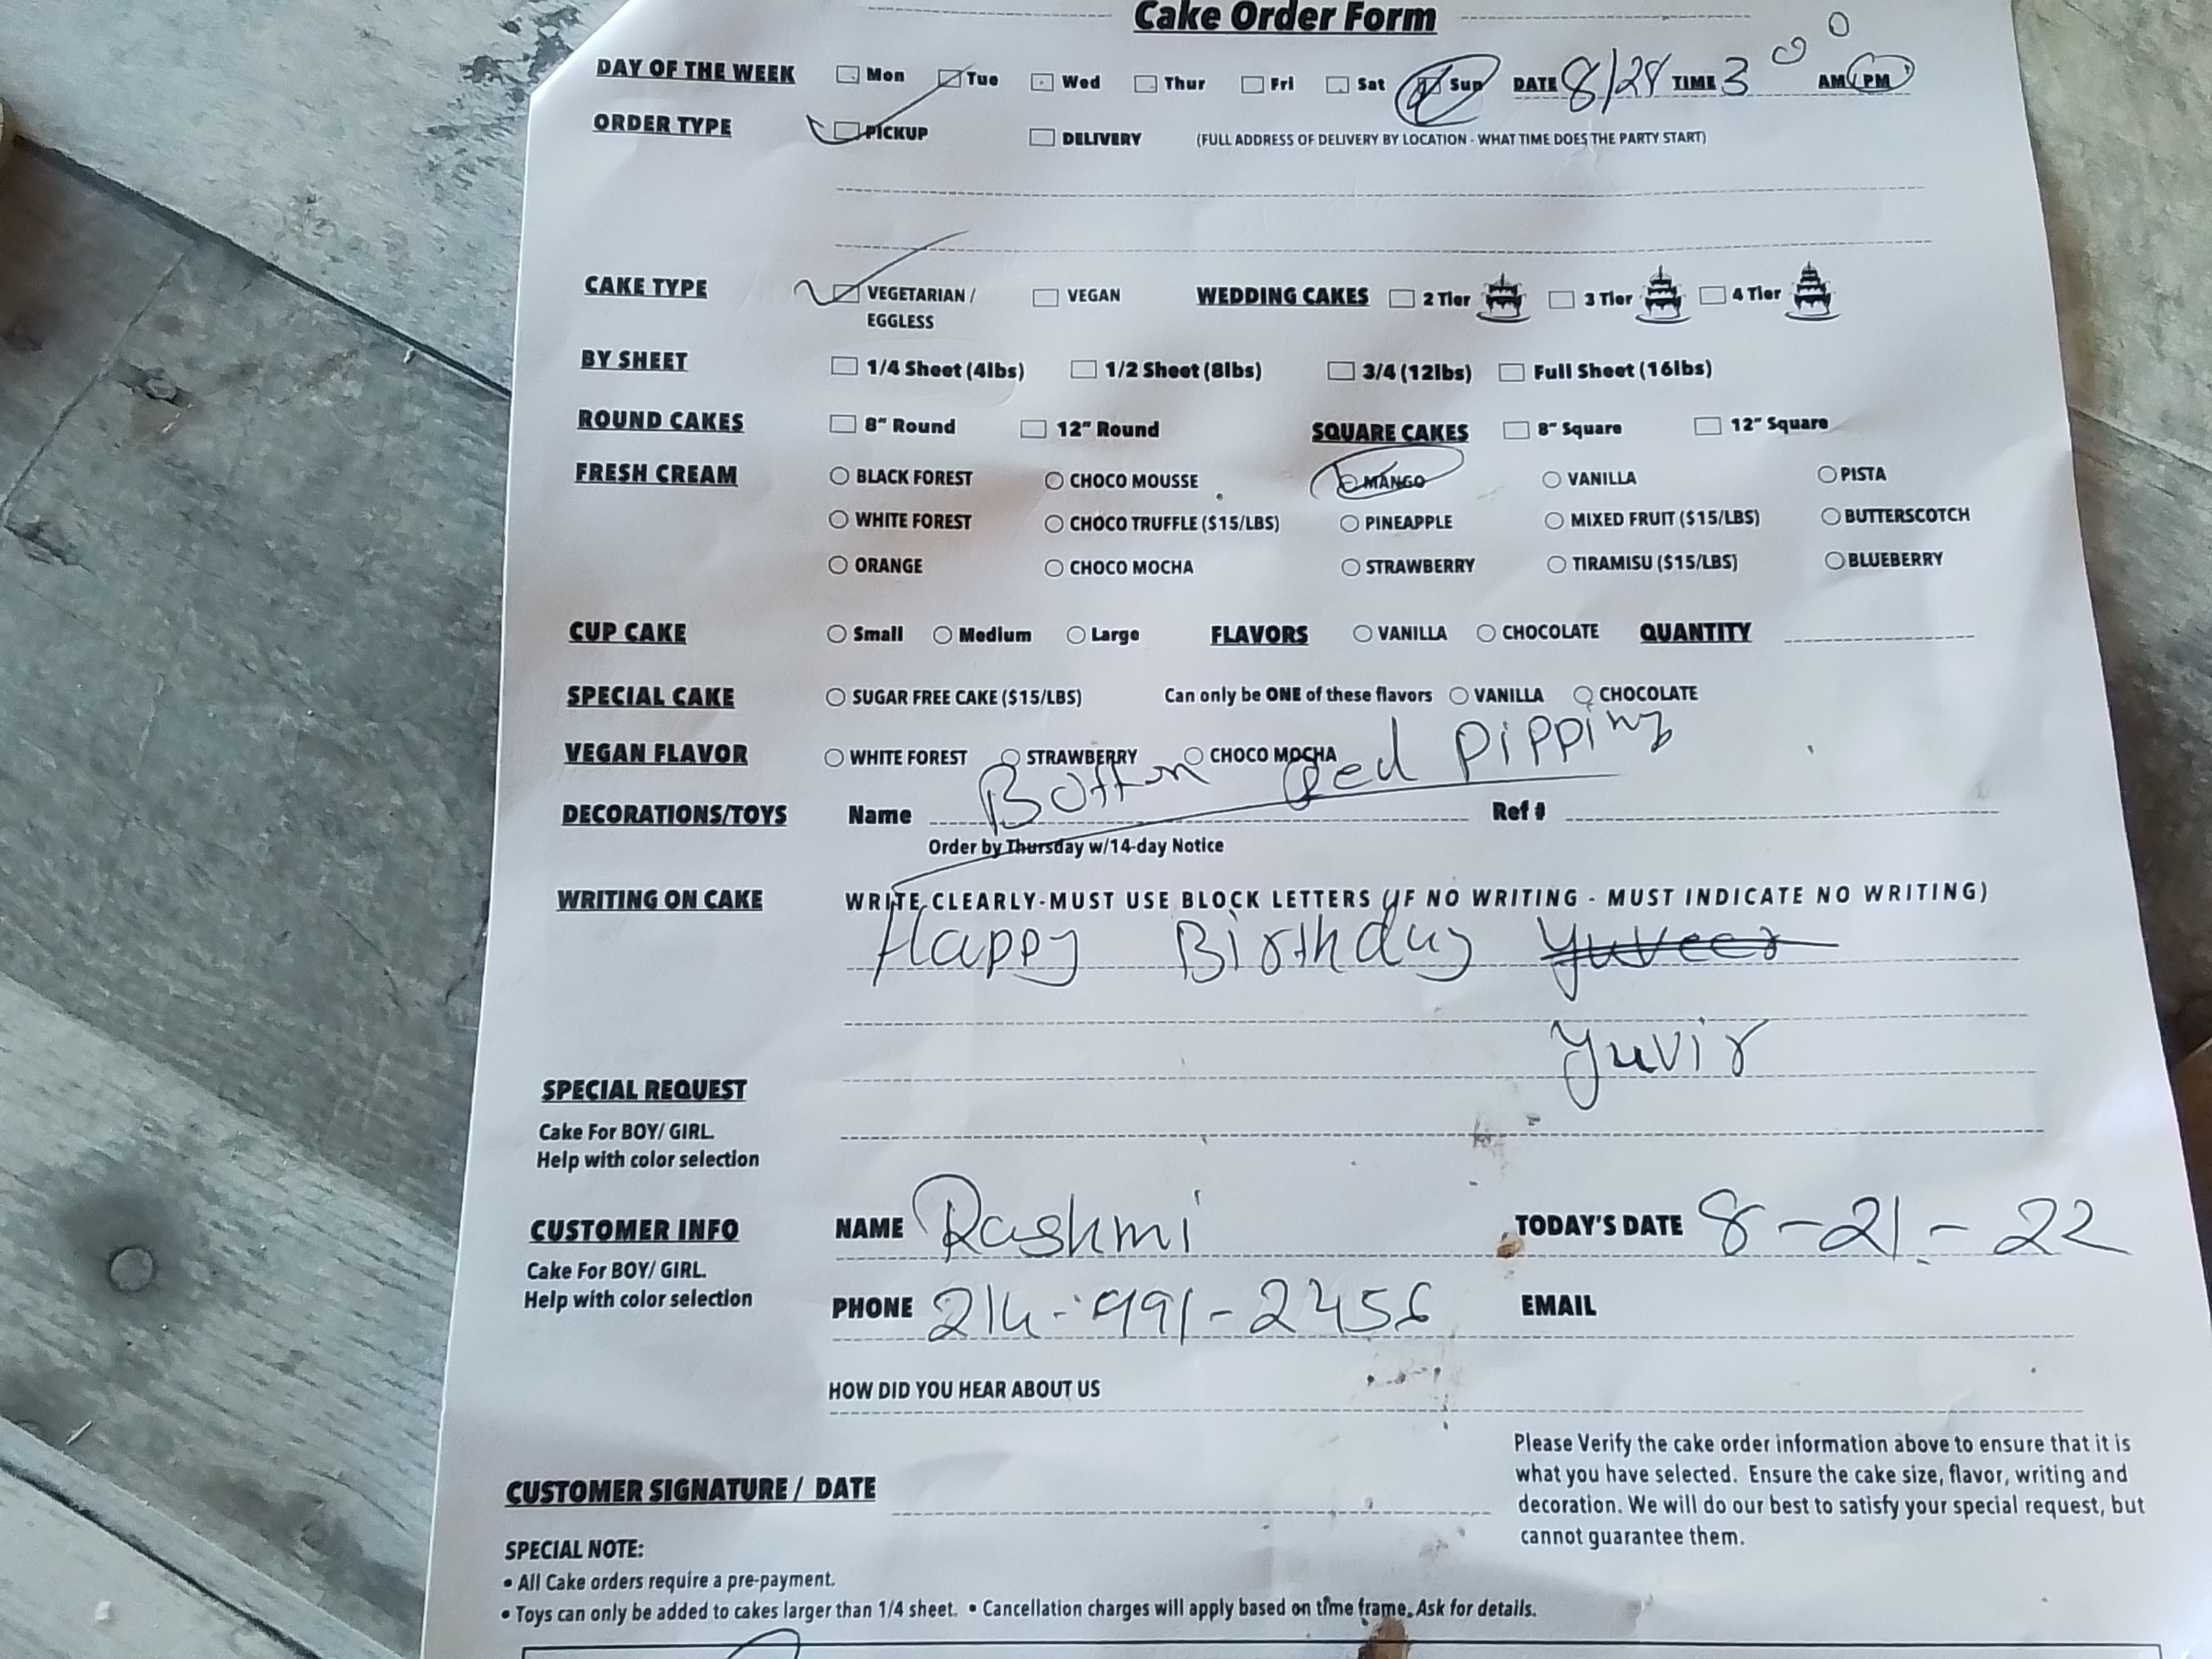 Cake Order Form
DAY OF THE WEEK Mon Tue Wed Thur Fri Sat Sun DATE 8/28 TIME 3 00 AM/PM
ORDER TYPE PICKUP DELIVERY (FULL ADDRESS OF DELIVERY BY LOCATION - WHAT TIME DOES THE PARTY START)
CAKE TYPE VEGETARIAN / VEGAN WEDDING CAKES 2 Tier 3 Tier 4 Tier
EGGLESS
BY SHEET 1/4 Sheet (4lbs) 1/2 Sheet (8lbs) 3/4 (12lbs) Full Sheet (16lbs)
ROUND CAKES 8" Round 12" Round SQUARE CAKES 8" Square 12" Square
FRESH CREAM BLACK FOREST CHOCO MOUSSE MANGO VANILLA PISTA
WHITE FOREST CHOCO TRUFFLE ($15/LBS) PINEAPPLE MIXED FRUIT ($15/LBS) BUTTERSCOTCH
ORANGE CHOCO MOCHA STRAWBERRY TIRAMISU ($15/LBS) BLUEBERRY
CUP CAKE Small Medium Large FLAVORS VANILLA CHOCOLATE QUANTITY
SPECIAL CAKE SUGAR FREE CAKE ($15/LBS) Can only be ONE of these flavors VANILLA CHOCOLATE
VEGAN FLAVOR WHITE FOREST STRAWBERRY CHOCO MOCHA
Red Pipping
DECORATIONS/TOYS Name Ref #
Order by Thursday w/14-day Notice
WRITING ON CAKE WRITE CLEARLY-MUST USE BLOCK LETTERS (IF NO WRITING - MUST INDICATE NO WRITING)
Happy Birthday Yuveer
Yuvir
SPECIAL REQUEST
Cake For BOY/ GIRL.
Help with color selection
CUSTOMER INFO NAME Rashmi TODAY'S DATE 8-21-22
Cake For BOY/ GIRL.
Help with color selection
PHONE 214-991-2456 EMAIL
HOW DID YOU HEAR ABOUT US
Please Verify the cake order information above to ensure that it is
what you have selected. Ensure the cake size, flavor, writing and
decoration. We will do our best to satisfy your special request, but
cannot guarantee them.
CUSTOMER SIGNATURE / DATE
SPECIAL NOTE:
• All Cake orders require a pre-payment.
• Toys can only be added to cakes larger than 1/4 sheet. • Cancellation charges will apply based on time frame. Ask for details.